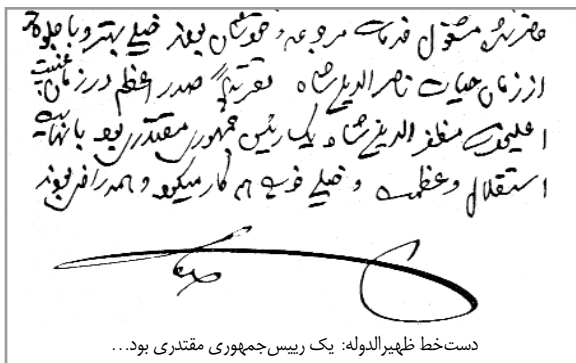 حاضر شده مشغول خدمات مرجوعه خودشان بودند خیلی بهتر و با جلوه‌تر
از زمان حیات ناصرالدین شاه تقریباً صدراعظم در زمان غیبت
اعلیحضرت مظفرالدین شاه یک رئیس جمهوری مقتدری بود با نهایت
استقلال و عظمت و خیلی خوب هم کار میکرد و همه راضی بودند
دست‌خط ظهیرالدوله: یک رییس‌جمهوری مقتدری بود...